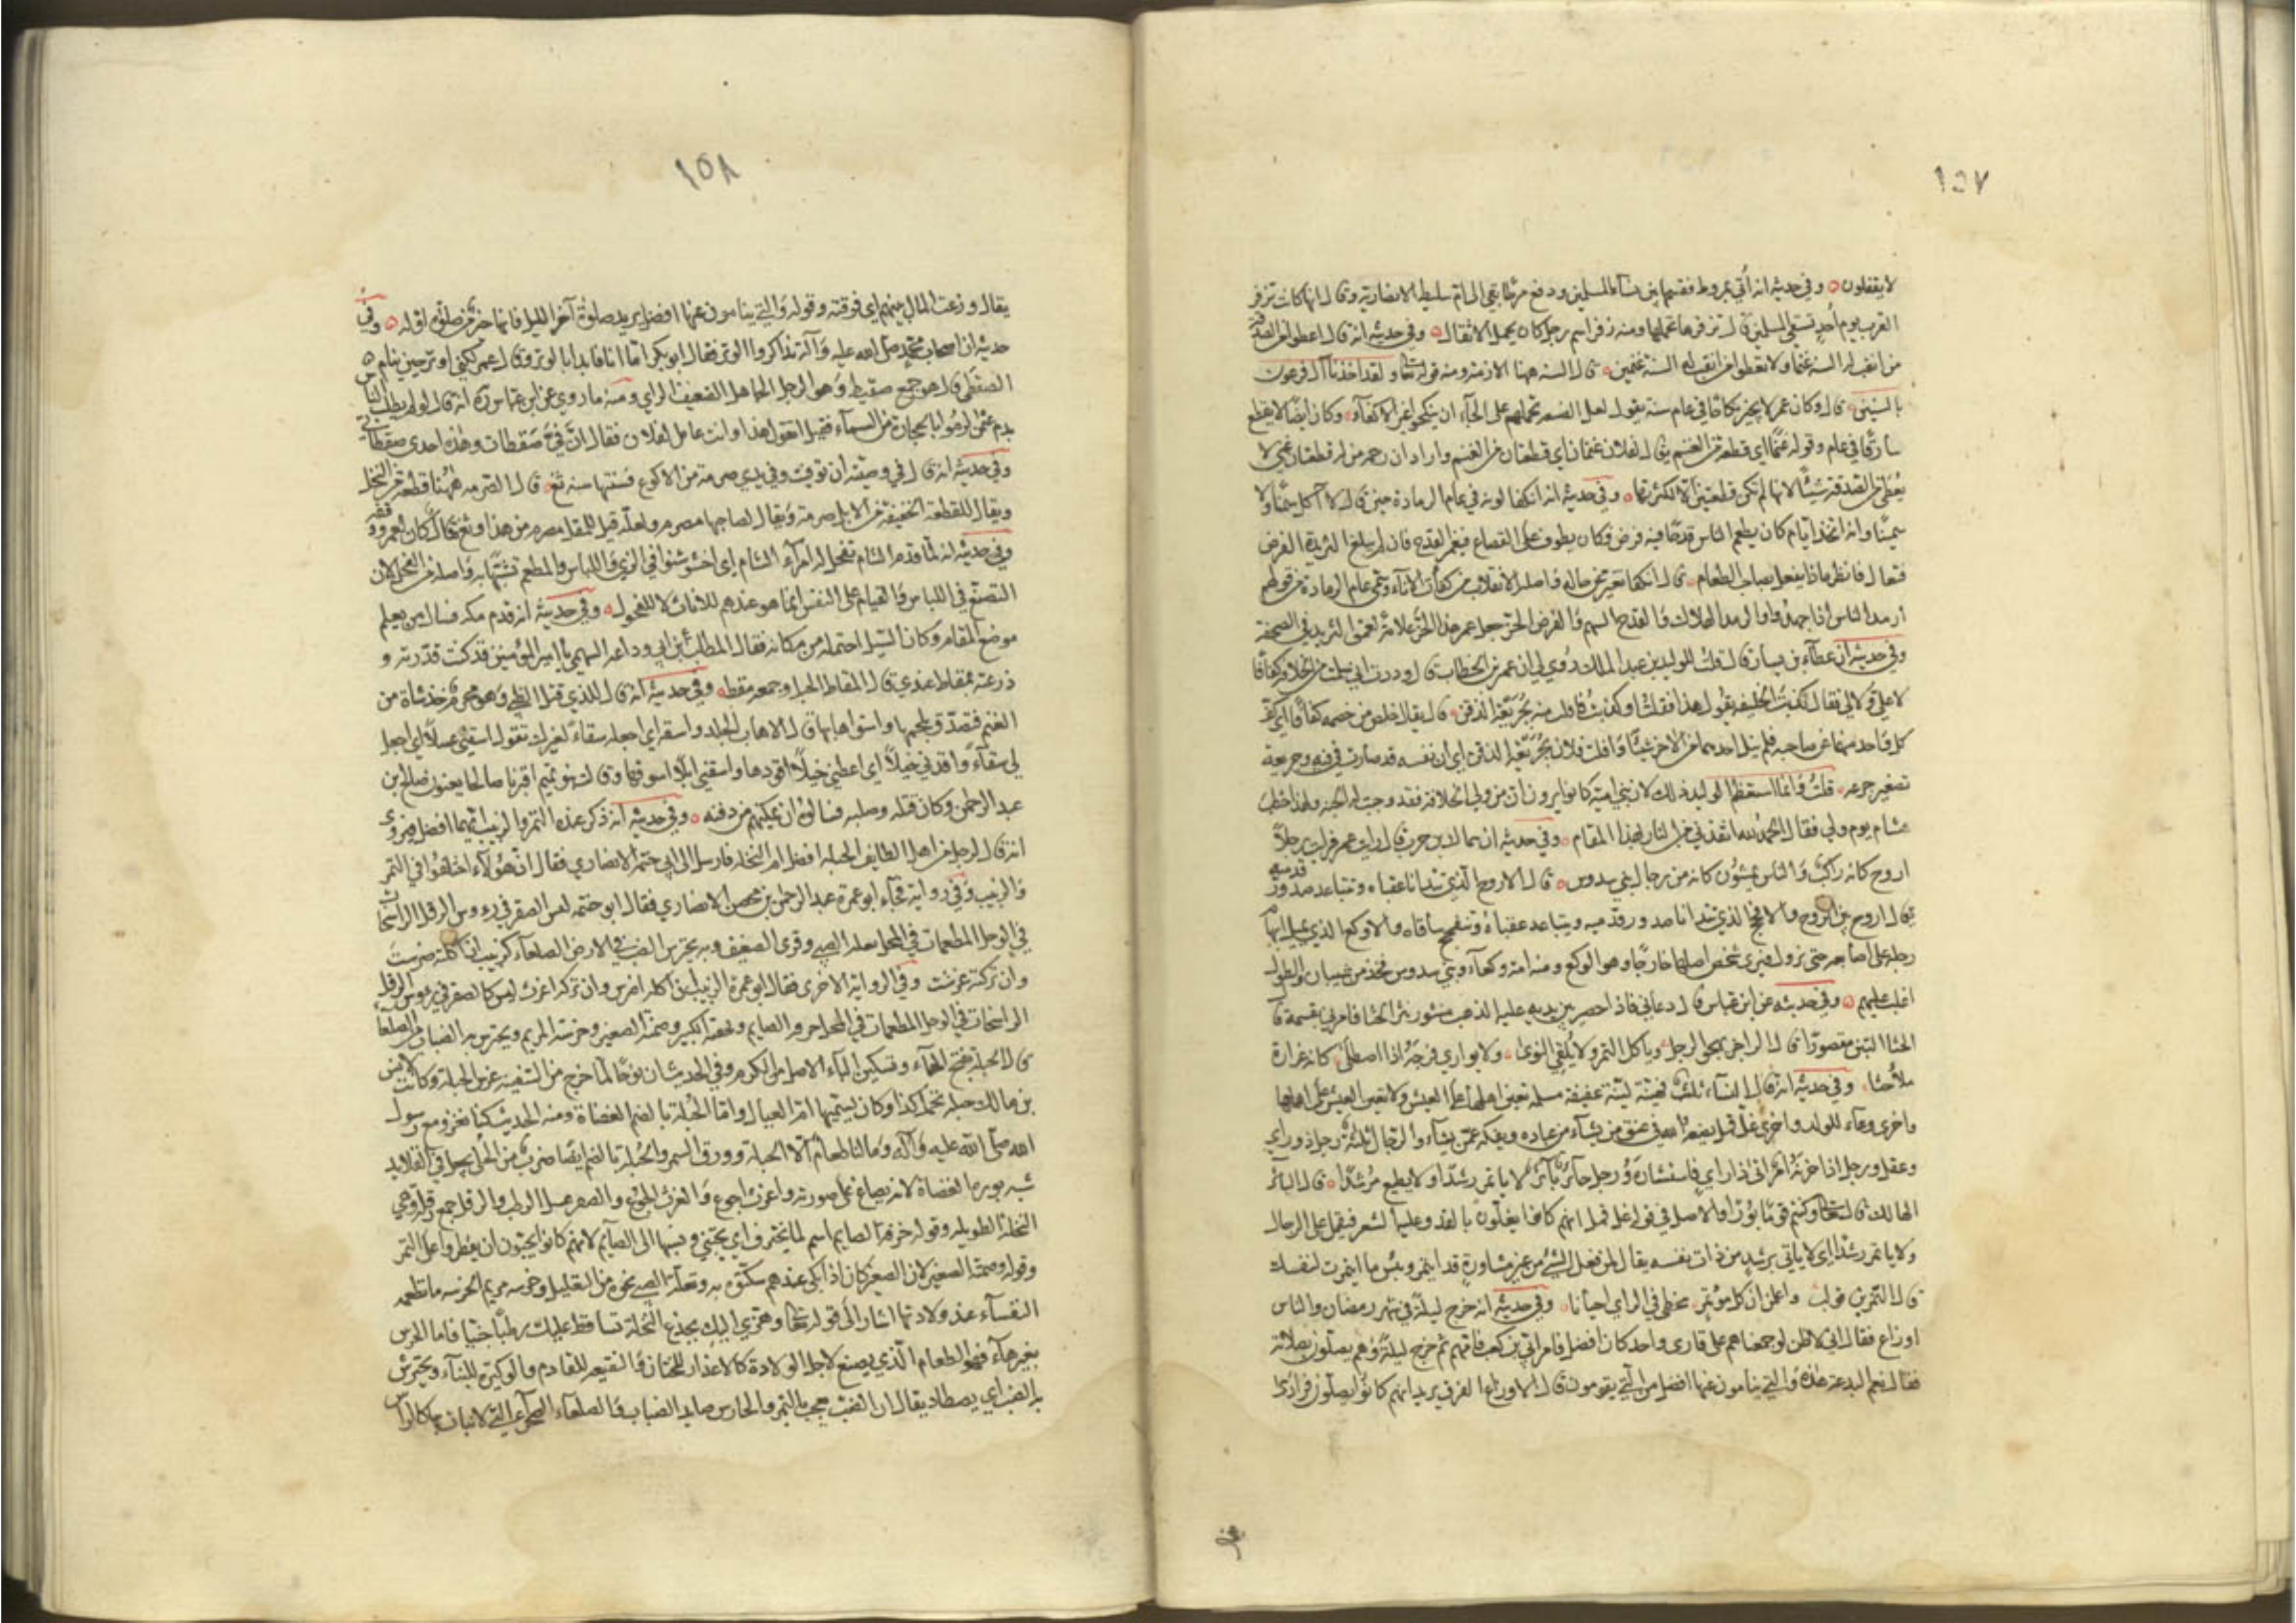 ١٥٧
لا يقفلون ٥ وفي حديثه انه أتي بمروط فقسمها بين نساء المسلمين ودفع مرطا بقي الى ام سليط الانصارية وقال انها كانت تزفر
القرب يوم أحد تسقي المسلمين قال تزفرها تحملها ومنه زفر اسم رجل كان يحمل الاثقال ٥ وفي حديثه انه قال اعطوا من الصدقة
من ابقت له السنة غنما ولا تعطوا من ابقت له السنة غنمين ٥ قال السنة ههنا الازمة ومنه قوله تعالى ولقد اخذنا آل فرعون
بالسنين ٥ قال وكان عمر لا يجيز نكاحا في عام سنة يقول لعل الضيعة تحملهم على الحاجة ان ينكحوا غير الاكفاء ٥ وكان ايضا لا يقطع
سارقا في عام وقوله غنما اي قطعة من الغنم يقال لفلان غنمان اي قطعتان من الغنم واراد ان رحمه من له قطعتان غني لا
يعطى من الصدقة شيئا لانها لم تكن قطعتين الا لكثرتها ٥ وفي حديثه انه انكفا لونه في عام الرمادة حين قال لا آكل سمنا ولا
سمينا وانه اتخذ ايام كان يطعم الناس قدحا فيه فرض وكان يطوف على القصاع فيغمز القدح فان لم يبلغ الثريدة الفرض
فتعال فانظر ماذا يفعل بصاحب الطعام ٥ قال انكفا تغير عن حاله واصله الانقلاب من كفات الاناء وسمي عام الرمادة من قولهم
ارمد الناس اذا جهدوا والرمد الهلاك والقدح السهم والفرض الحز جعل عمر هذا الحز علامة لعمق الثريد في الصحفة
وفي حديثه ان عطاء بن يسار قال قلت للوليد بن عبد الملك روي لي ان عمر بن الخطاب قال وددت اني سلمت من الخلافة كفافا
لا علي ولا لي فقال كذبت الخليفة يقول هذا فقلت او كذبت فافلت منه بجريعة الذقن ٥ قال يقال خلص من خصمه كفافا اي كف
كل واحد منهما عن صاحبه فلم ينل احدهما من الاخر شيئا وافلت فلان بجريعة الذقن اي ان نفسه قد صارت في فيه وجريعة
تصغير جرعه ٥ قلت وانما استعظم الوليد ذلك لان بني امية كانوا يرون ان من ولي الخلافة فقد وجبت له الجنة ولهذا خطب
هشام يوم ولي فقال الحمد لله الذي انقذني من النار بهذا المقام ٥ وفي حديثه ان سماك بن حرب قال رايت عمر فرايت رجلا
اروح كانه راكب والناس يمشون كانه من رجال بني سدوس ٥ قال الاروح الذي تتدانا عقباه وتتباعد صدور قدميه
يقال اروح بين الروح والافحج الذي تتدانا صدور قدميه ويتباعد عقباه وتتفحج ساقاه والاوكع الذي يميل ابهام
رجله على اصابعه حتى تزول فيرى شخص اصلها خارجا وهو الوكع ومنه امة وكعاء وبني سدوس فخذ من شيبان والطول
اغلب عليهم ٥ وفي حديثه عن ابن عباس قال دعاني فاذا حصير بين يديه عليه الذهب منثور نثر الحثا فامرني بقسمه قال
الحثا التبن مقصورا قال الراجز ويحك الرجل وياكل التمر ولا يلقي النوى ٥ ولا يواري فرجه اذا اصطلى ٥ كانه غرارة
ملأى حثا ٥ وفي حديثه انه قال النساء ثلث فهينة لينة عفيفة مسلمة تعين اهلها على العيش ولا تعين العيش على اهلها
واخرى وعاء للولد واخرى غل قمل يضعه الله في عنق من يشاء من عباده ويفكه عمن يشاء والرجال ثلثة رجل ذو راي
وعقل ورجل اذا حزبه امر اتى ذا راي فاستشاره ورجل حائر بائر لا ياتمر رشدا ولا يطيع مرشدا ٥ قال البائر
الهالك قال تعالى وكنتم قوما بورا والاصل في قوله غل قمل انهم كانوا يغلون بالقد وعليه الشعر فيقمل على الرجل
ولا ياتمر رشدا اي لا ياتي برشد من ذات نفسه يقال لمن فعل الشيء من غير مشاورة قد ايتمر وبئس ما ايتمرت لنفسك
قال النمر بن تولب واعلمن ان كل مؤتمر مخطئ في الراي احيانا ٥ وفي حديثه انه خرج ليلة في شهر رمضان والناس
اوزاع فقال اني لاظن لو جمعناهم على قارئ واحد كان افضل فامر ابي بن كعب فامهم ثم خرج ليلة وهم يصلون بصلاته
فقال نعم البدعة هذه والتي ينامون عنها افضل من التي يقومون قال الاوزاع الفرق يريد انهم كانوا يصلون فرادى
١٥٨
يقال وزعت المال بينهم اي فرقته وقوله والتي ينامون عنها افضل يريد صلوة آخر الليل فانها خير من صلوة اوله ٥ وفي
حديثه ان اصحاب محمد صلى الله عليه وآله تذاكروا الوتر فقال ابو بكر اما انا فابدا بالوتر وقال عمر لكني اوتر حين ينام
الضفطى قال هو جمع ضفيط وهو الرجل الجاهل الضعيف الراي ومنه ما روي عن ابن عباس ره انه قال لو لم يطلب الناس
بدم عثمن لرموا بالحجارة من السماء فقيل اتقول هذا وانت عامل لفلان فقال ان في ضفطات وهذه احدى ضفطاتي
وفي حديثه انه قال في وصيته ان توفيت وفي يدي صرمة من الاكوع فسنتها سنة ثمغ ٥ قال الصرمه ههنا قطعة من النخل
ويقال للقطعة الخفيفة من الابل صرمة ويقال لصاحبها مصرم ولعله قيل للمقل مصرم من هذا وثمغ مال كان لعمر ووقفه
وفي حديثه انه لما قدم الشام تفحل له امراء الشام اي اخشوشنوا في الزي واللباس والمطعم تشبها به واصله من الفحل لان
التصنع في اللباس والقيام على النفس انما هو عندهم للاناث لا للفحول ٥ وفي حديثه انه قدم مكه فسال من يعلم
موضع المقام وكان السيل احتمله من مكانه فقال المطلب بن ابي وداعه السهمي يا امير المؤمنين قد كنت قدرته و
ذرعته بمقاط عندي قال المقاط الحبل وجمعه مقط ٥ وفي حديثه انه قال للذي قتل الظبي وهو محرم خذ شاة من
الغنم فتصدق بلحمها واسق اهابها قال الاهاب الجلد واسقه اي اجعله سقاء لغيرك تقول اسقني عسلا اي اجعل
لي سقاء واقدني خيلا اي اعطني خيلا اقودها واسقني ابلا اسوقها وقالت بنو تميم اقبرنا صالحا يعنون صالح بن
عبد الرحمن وكان قتله وصلبه فسالوه ان يمكنهم من دفنه ٥ وفي حديثه انه ذكر عنده التمر والزبيب ايهما افضل فروى
انه قال لرجل من اهل الطايف الحبله افضل ام النخله فارسل الى ابي حثمة الانصاري فقال ان هؤلاء اختلفوا في التمر
والزبيب وفي رواية فجاء ابو عمرة عبد الرحمن بن محصن الانصاري فقال ابو حثمه ليس الصقر في رءوس الرقل الراسخات
في الوحل المطعمات في المحل تعلة الصبي وقرى الضيف وبه يحترش الضب في الارض الصلعاء كزبيب ان اكلته ضرست
وان تركته غرثت وفي الرواية الاخرى فقال ابو عمرة الزبيب ان اكله اضرس وان تركه اغرث ليس كالصقر في رءوس الرقل
الراسخات في الوحل المطعمات في المحل خرفة الصايم وتحفة الكبير وصمتة الصغير وخرسة مريم ويحترش به الضباب من الصلعاء
قال الحبله بفتح الحاء وتسكين الباء الاصل من الكرم وفي الحديث ان نوحا لما خرج من السفينه غرس الحبلة وكانت لانس
بن مالك حبله تحمل كذا وكان يسميها ام العيال واما الحبلة بالضم العضاة ومنه الحديث كنا نغزو مع رسول
الله صلى الله عليه وآله وما لنا طعام الا الحبلة وورق السمر والحبلة بالضم ايضا ضرب من الحلي يجعل في القلايد
شبه بورد العضاة لانه يصاغ على صورته واغرث اجوع والغرث الجوع والصقر عسل الرطب والرقل جمع رقلة وهي
النخلة الطويله وقوله خرفة الصايم اسم لما يخترف اي يجتنى ونسبها الى الصائم لانهم كانوا يحبون ان يفطروا على التمر
وقوله وصمتة الصغير لان الصغير كان اذا بكى عندهم سكتوه به وتعلة الصبي نحوه من التعليل وخرسه مريم الخرسه ما تطعمه
النفساء عند ولادتها اشار الى قوله تعالى وهزي اليك بجذع النخلة تساقط عليك رطبا جنيا فاما الخرس
بغير هاء فهو الطعام الذي يصنع لاجل الولادة كالاعذار للختان والنقيعة للقادم والوكيرة للبناء ويحترش
به الضب اي يصطاد يقال ان الضب يعجب بالتمر والحارش صايد الضباب والصلعاء الصحراء التي لا نبات بها كالراس